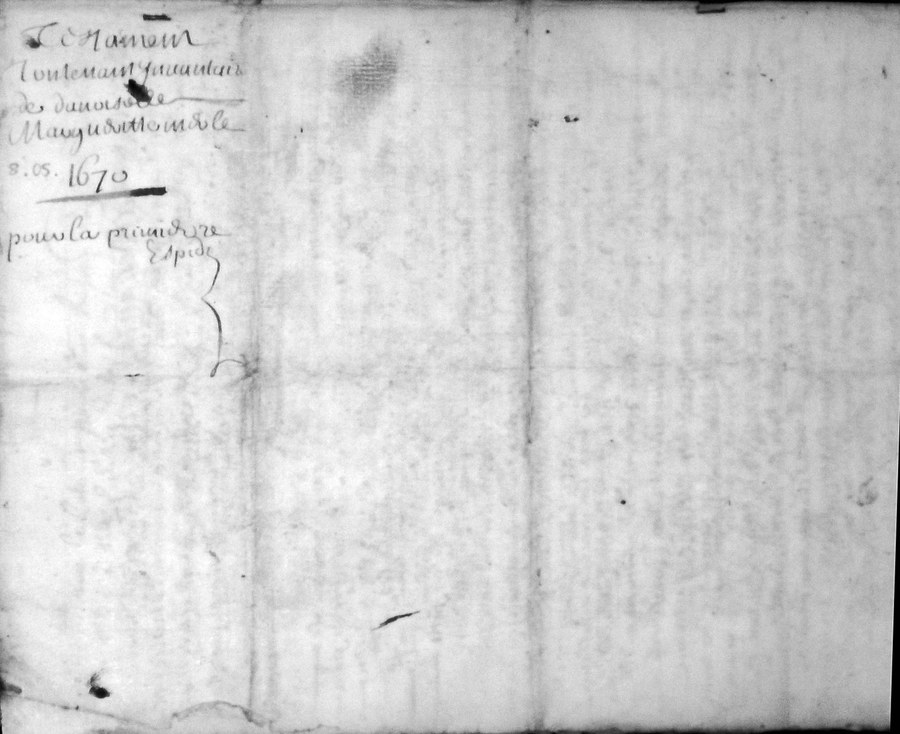 Testament
Contenant Inventaire
de damoiselle
Margueritte
8.05. 1670
pour la premiere
Espede